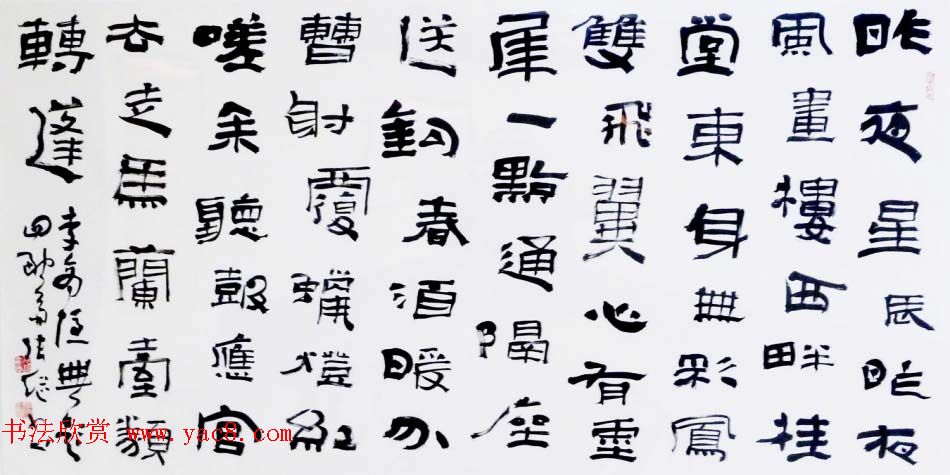 昨夜星辰昨夜
風畫樓西畔桂
堂東身無彩鳳
雙飛翼心有靈
犀一點通隔座
送鉤春酒暖分
曹射覆蠟燈紅
嗟余聽鼓應官
去走馬蘭臺類
轉蓬
李商隱無
張繼
书法欣赏 www.yac8.com